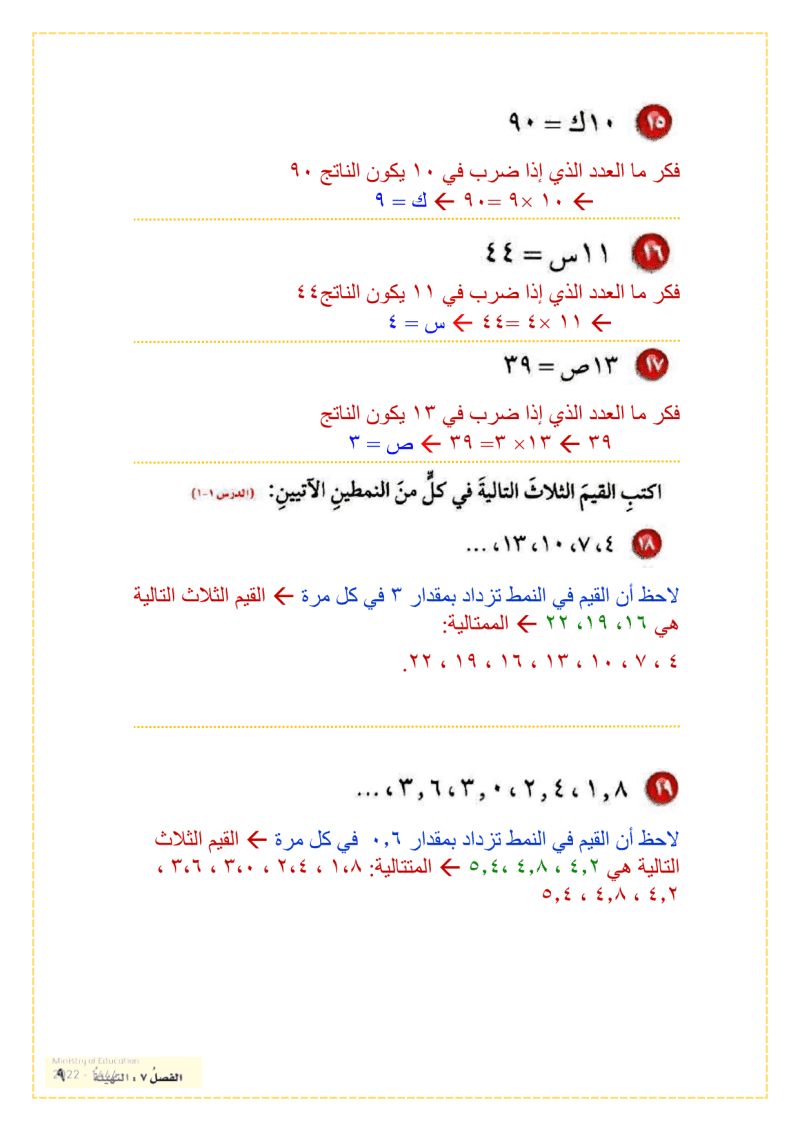 ١٥ ١٠ك = ٩٠
فكر ما العدد الذي إذا ضرب في ١٠ يكون الناتج ٩٠
← ١٠ ×٩ =٩٠ ← ك = ٩
١٦ ١١س = ٤٤
فكر ما العدد الذي إذا ضرب في ١١ يكون الناتج٤٤
← ١١ ×٤ =٤٤ ← س = ٤
١٧ ١٣ص = ٣٩
فكر ما العدد الذي إذا ضرب في ١٣ يكون الناتج
٣٩ ← ١٣× ٣= ٣٩ ← ص = ٣
اكتبِ القيمَ الثلاثَ التاليةَ في كلٍّ منَ النمطينِ الآتيينِ: (الدرس ١-١)
١٨ ٤، ٧، ١٠، ١٣، ...
لاحظ أن القيم في النمط تزداد بمقدار ٣ في كل مرة ← القيم الثلاث التالية
هي ١٦، ١٩، ٢٢ ← الممتالية:
٤ ، ٧ ، ١٠ ، ١٣ ، ١٦ ، ١٩ ، ٢٢.
١٩ ١,٨، ٢,٤، ٣,٠، ٣,٦، ...
لاحظ أن القيم في النمط تزداد بمقدار ٠,٦ في كل مرة ← القيم الثلاث
التالية هي ٤,٢ ، ٤,٨ ،٥,٤ ← المتتالية: ١،٨ ، ٢،٤ ، ٣،٠ ، ٣،٦ ،
٤,٢ ، ٤,٨ ، ٥,٤
Ministry of Education
2022 -
الفصلُ ٧ : التهيئةُ ٩